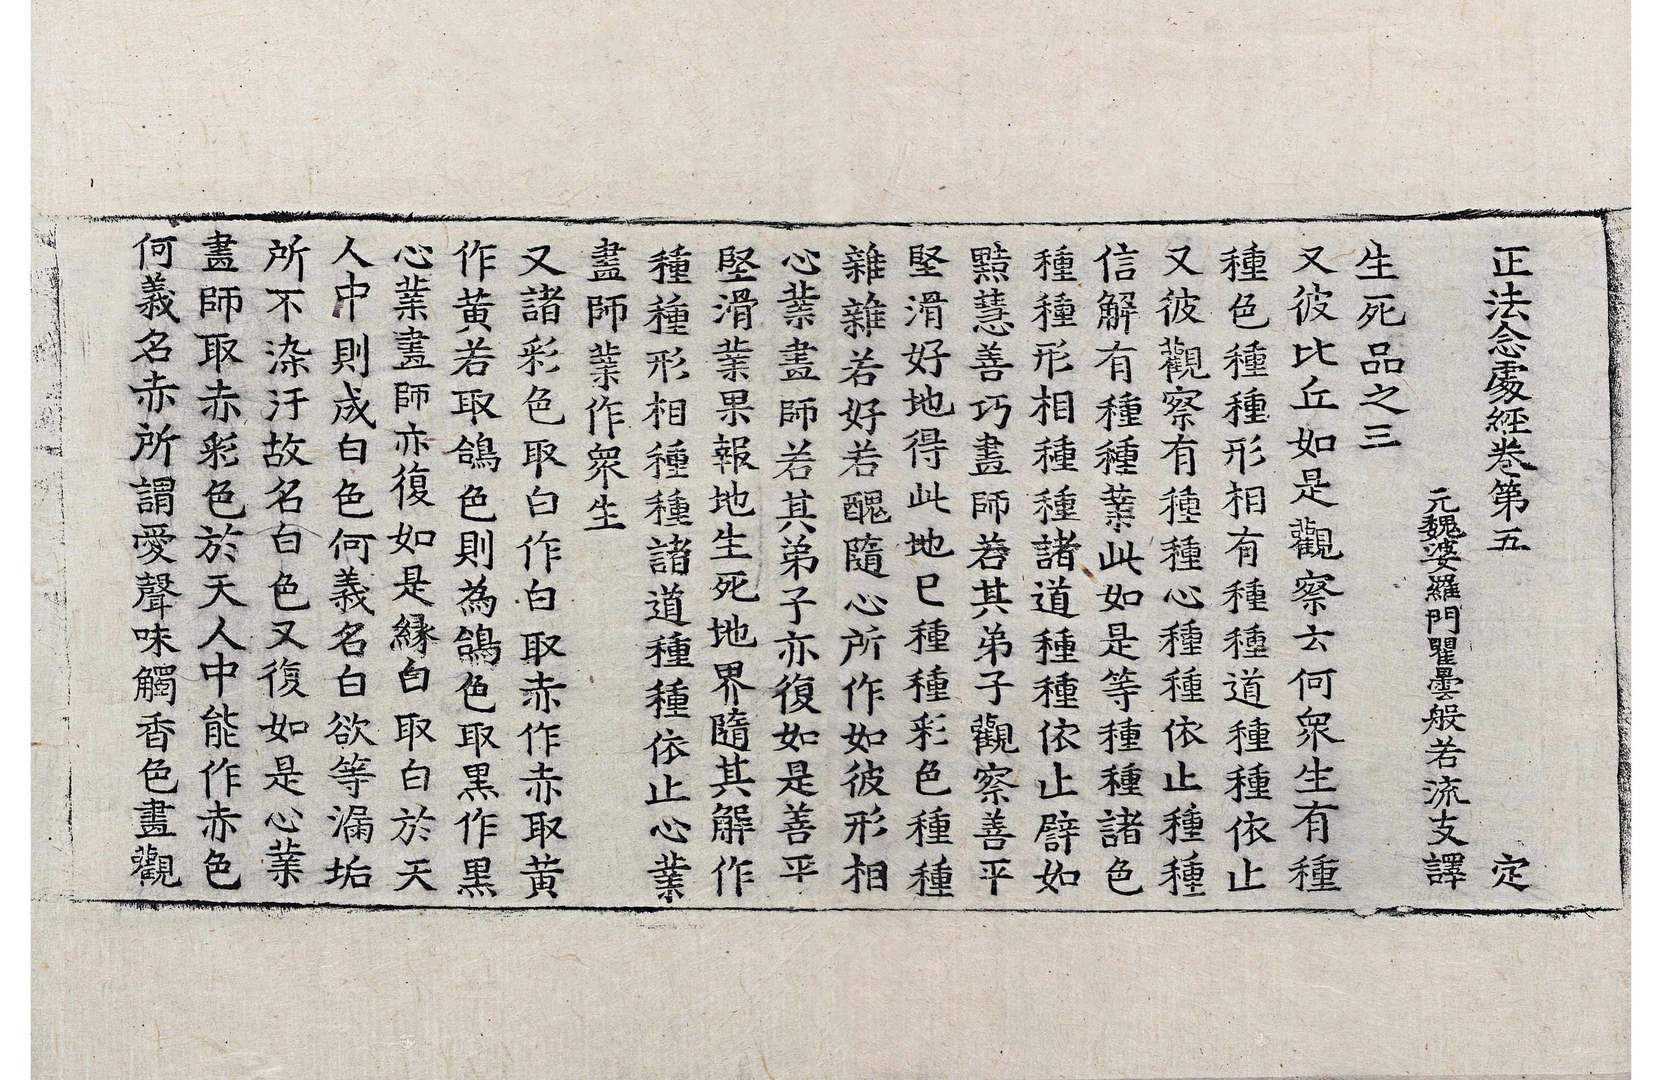 正法念處經卷第五 定
元魏婆羅門瞿曇般若流支譯
生死品之三
又彼比丘如是觀察云何衆生有種
種色種種形相有種種道種種依止
又彼觀察有種種心種種依止種種
信解有種種業此如是等種種諸色
種種形相種種諸道種種依止譬如
黠慧善巧畫師若其弟子觀察善平
堅滑好地得此地已種種彩色種種
雜雜若好若醜隨心所作如彼形相
心業畫師若其弟子亦復如是善平
堅滑業果報地生死地界隨其解作
種種形相種種諸道種種依止心業
畫師業作衆生
又諸彩色取白作白取赤作赤取黃
作黃若取鴿色則為鴿色取黑作黑
心業畫師亦復如是緣白取白於天
人中則成白色何義名白欲等漏垢
所不染汙故名白色又復如是心業
畫師取赤彩色於天人中能作赤色
何義名赤所謂愛聲味觸香色畫觀